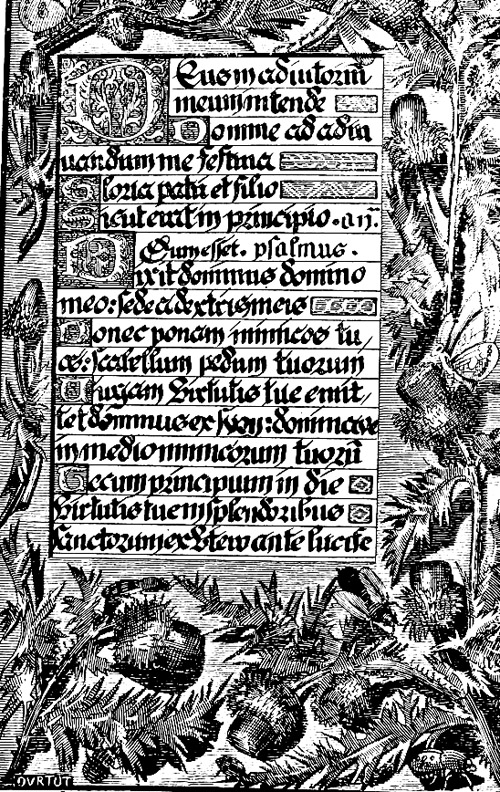 Deus in adiutoriū
meum intende
Domine ad adiu
uandum me festina
Gloria patri et filio
Sicut erat in principio . añ.
Cum esset . psalmus .
Dixit dominus domino
meo: sede a dextris meis
Donec ponam inimicos tu
os: scabellum pedum tuorum
Uirgam virtutis tue emit
tet dominus ex syon: dominare
in medio inimicorum tuorū
Tecum principium in die
virtutis tue in splendoribus
sanctorum: ex vtero ante lucife